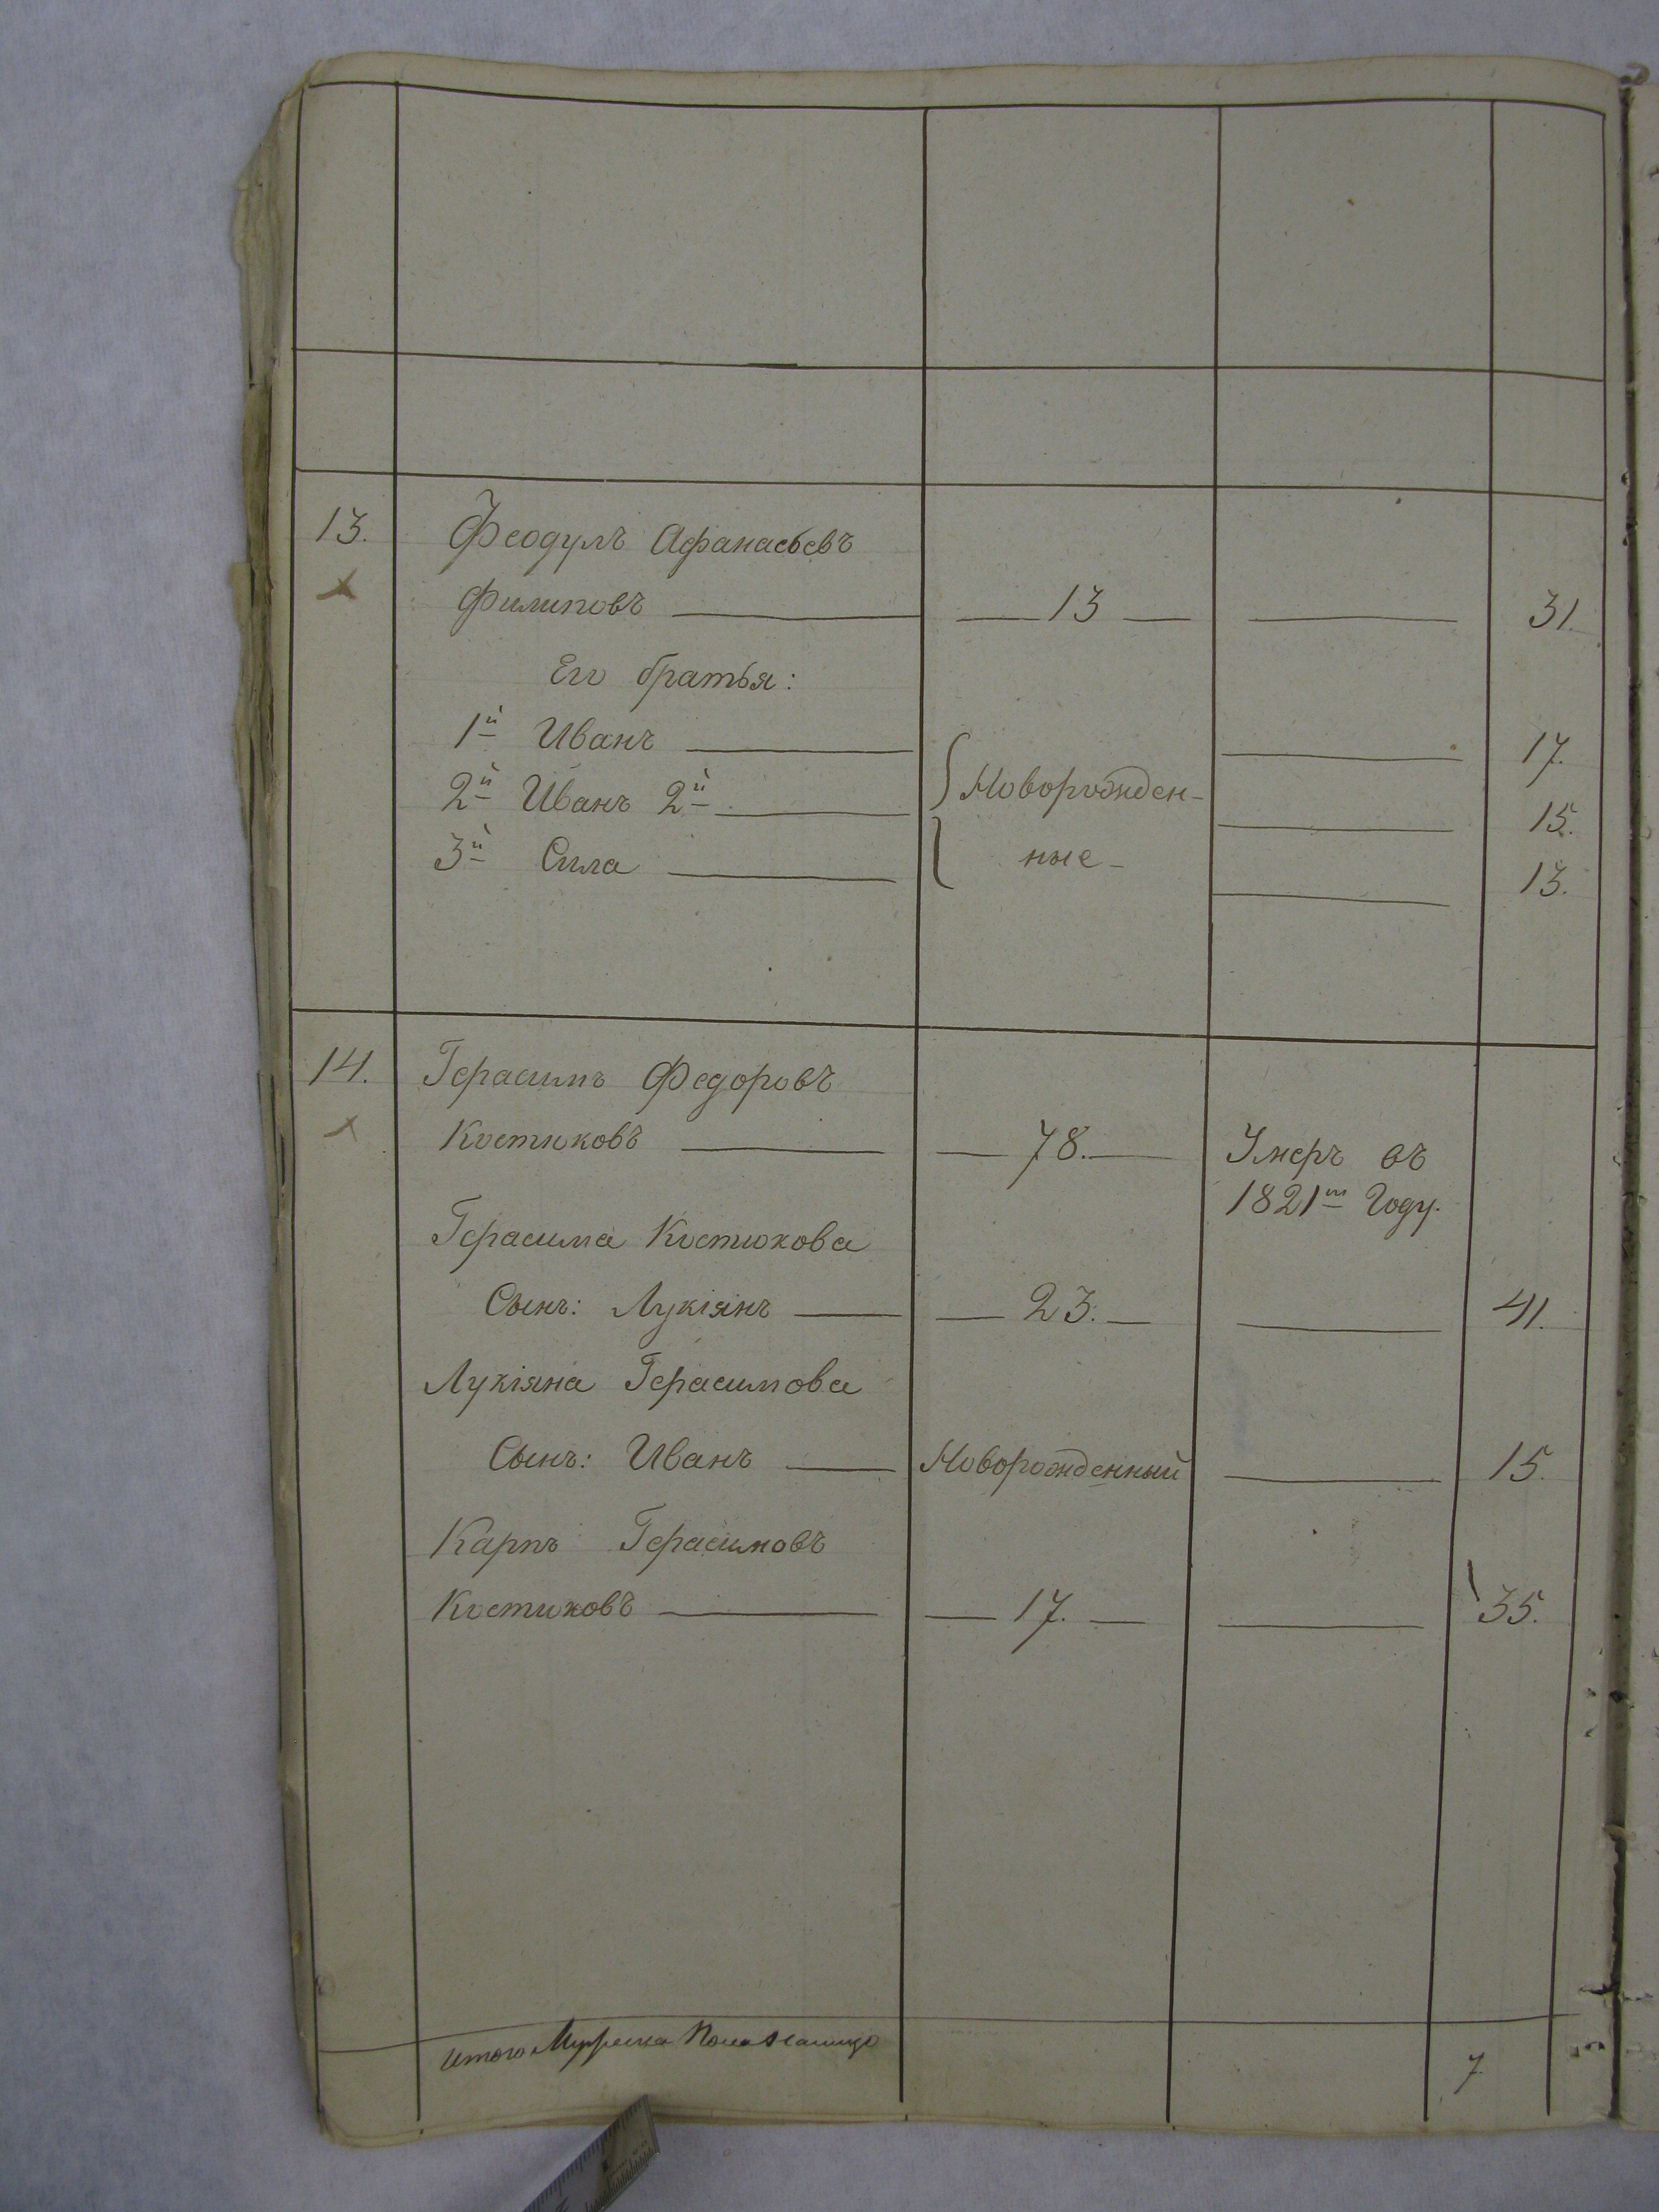 13. Феодулъ Афанасьевъ
Филиповъ — 13 — — 31.
Его братья:
1й Иванъ — — 17.
2й Иванъ 2й — Новорожден- — 15.
3й Сила — ные — 13.
14. Герасимъ Федоровъ
Костиковъ — 78. — Умеръ въ
1821м Году.
Герасима Костюкова
Сынъ: Лукіянъ — 23. — — 41.
Лукіяна Герасимова
Сынъ: Иванъ — Новорожденный — 15.
Карпъ Герасимовъ
Костиковъ — 17. — — 35.
итого Мужеска Пола налицо 7